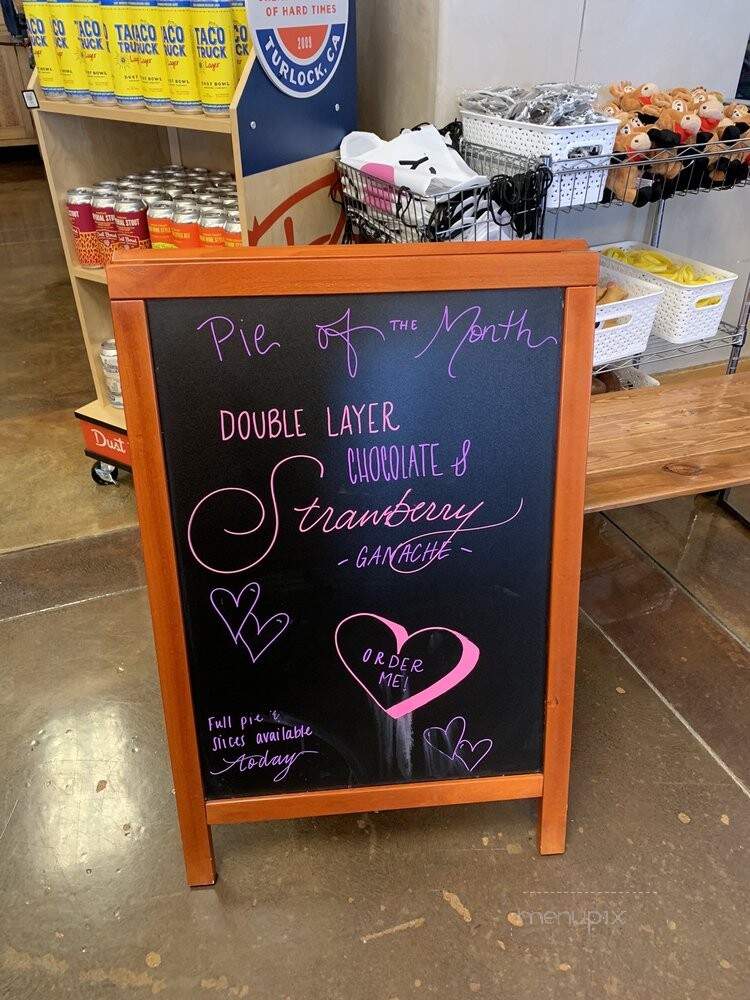 OF HARD TIMES
2009
TURLOCK, CA
TACO TRUCK
Lager
Pie of THE Month
DOUBLE LAYER
CHOCOLATE &
Strawberry
- GANACHE -
ORDER
ME!
Full pie &
slices available
today
Dust
menupix